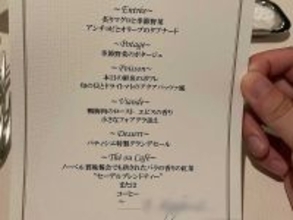 ～Entrée～
炙りマグロと季節野菜
アンチョビとオリーブのタプナード
～Potage～
季節野菜のポタージュ
～Poisson～
本日の鮮魚のポワレ
旬の貝とドライトマトのアクアパッツァ風
～Viande～
鴨胸肉のロースト エピスの香り
小さなフォアグラ添え
～Dessert～
パティシエ特製グランデセール
～Thé ou Café～
ノーベル賞晩餐会でも供されたバラの香りの紅茶
"セーデルブレンドティー"
または
コーヒー